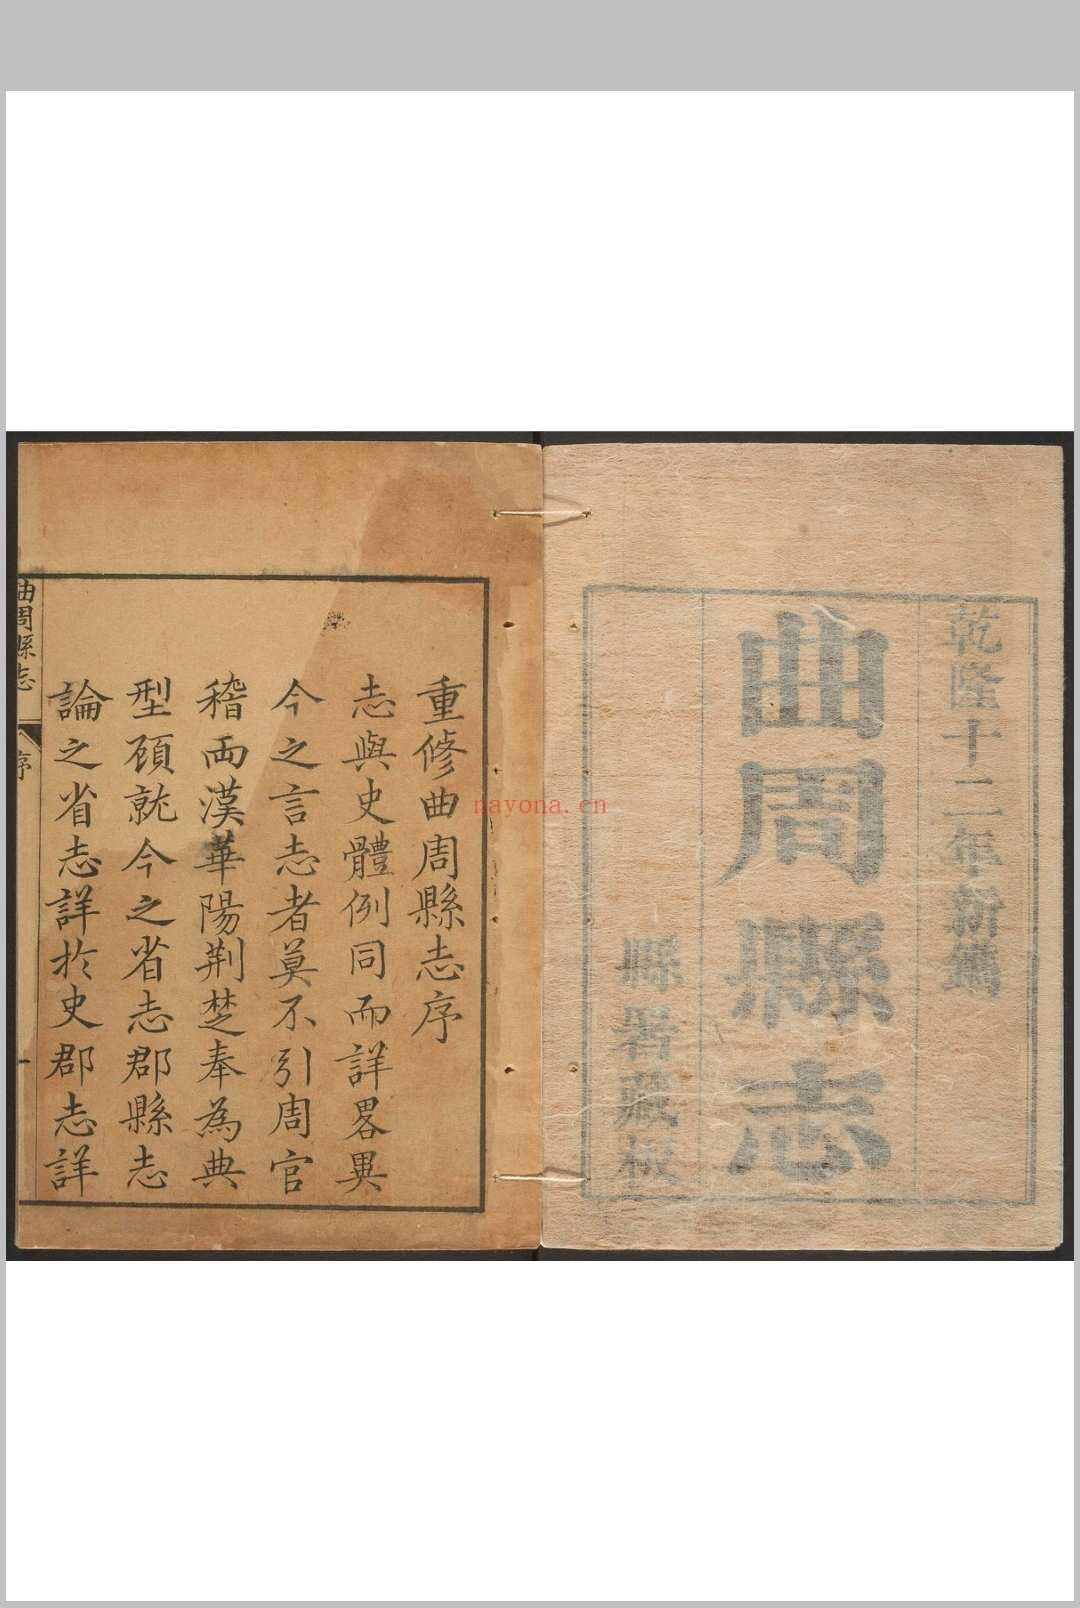 乾隆十二年新鐫
曲周縣志
縣署藏板
重修曲周縣志序
志與史體例同而詳畧異
今之言志者莫不引周官
稽兩漢華陽荆楚奉為典
型頋就今之省志郡縣志
論之省志詳扵史郡志詳
曲周縣志
序
一
nayona.cn